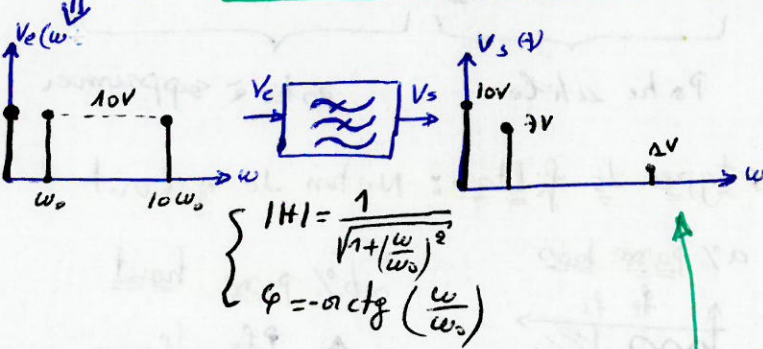 Ve(ω
10V
ω
ω₀
10ω₀
Ve
Vs
Vs(
10V
7V
1V
ω
|H| = 1 / √(1+(ω/ω₀)²)
φ = -arctg (ω/ω₀)